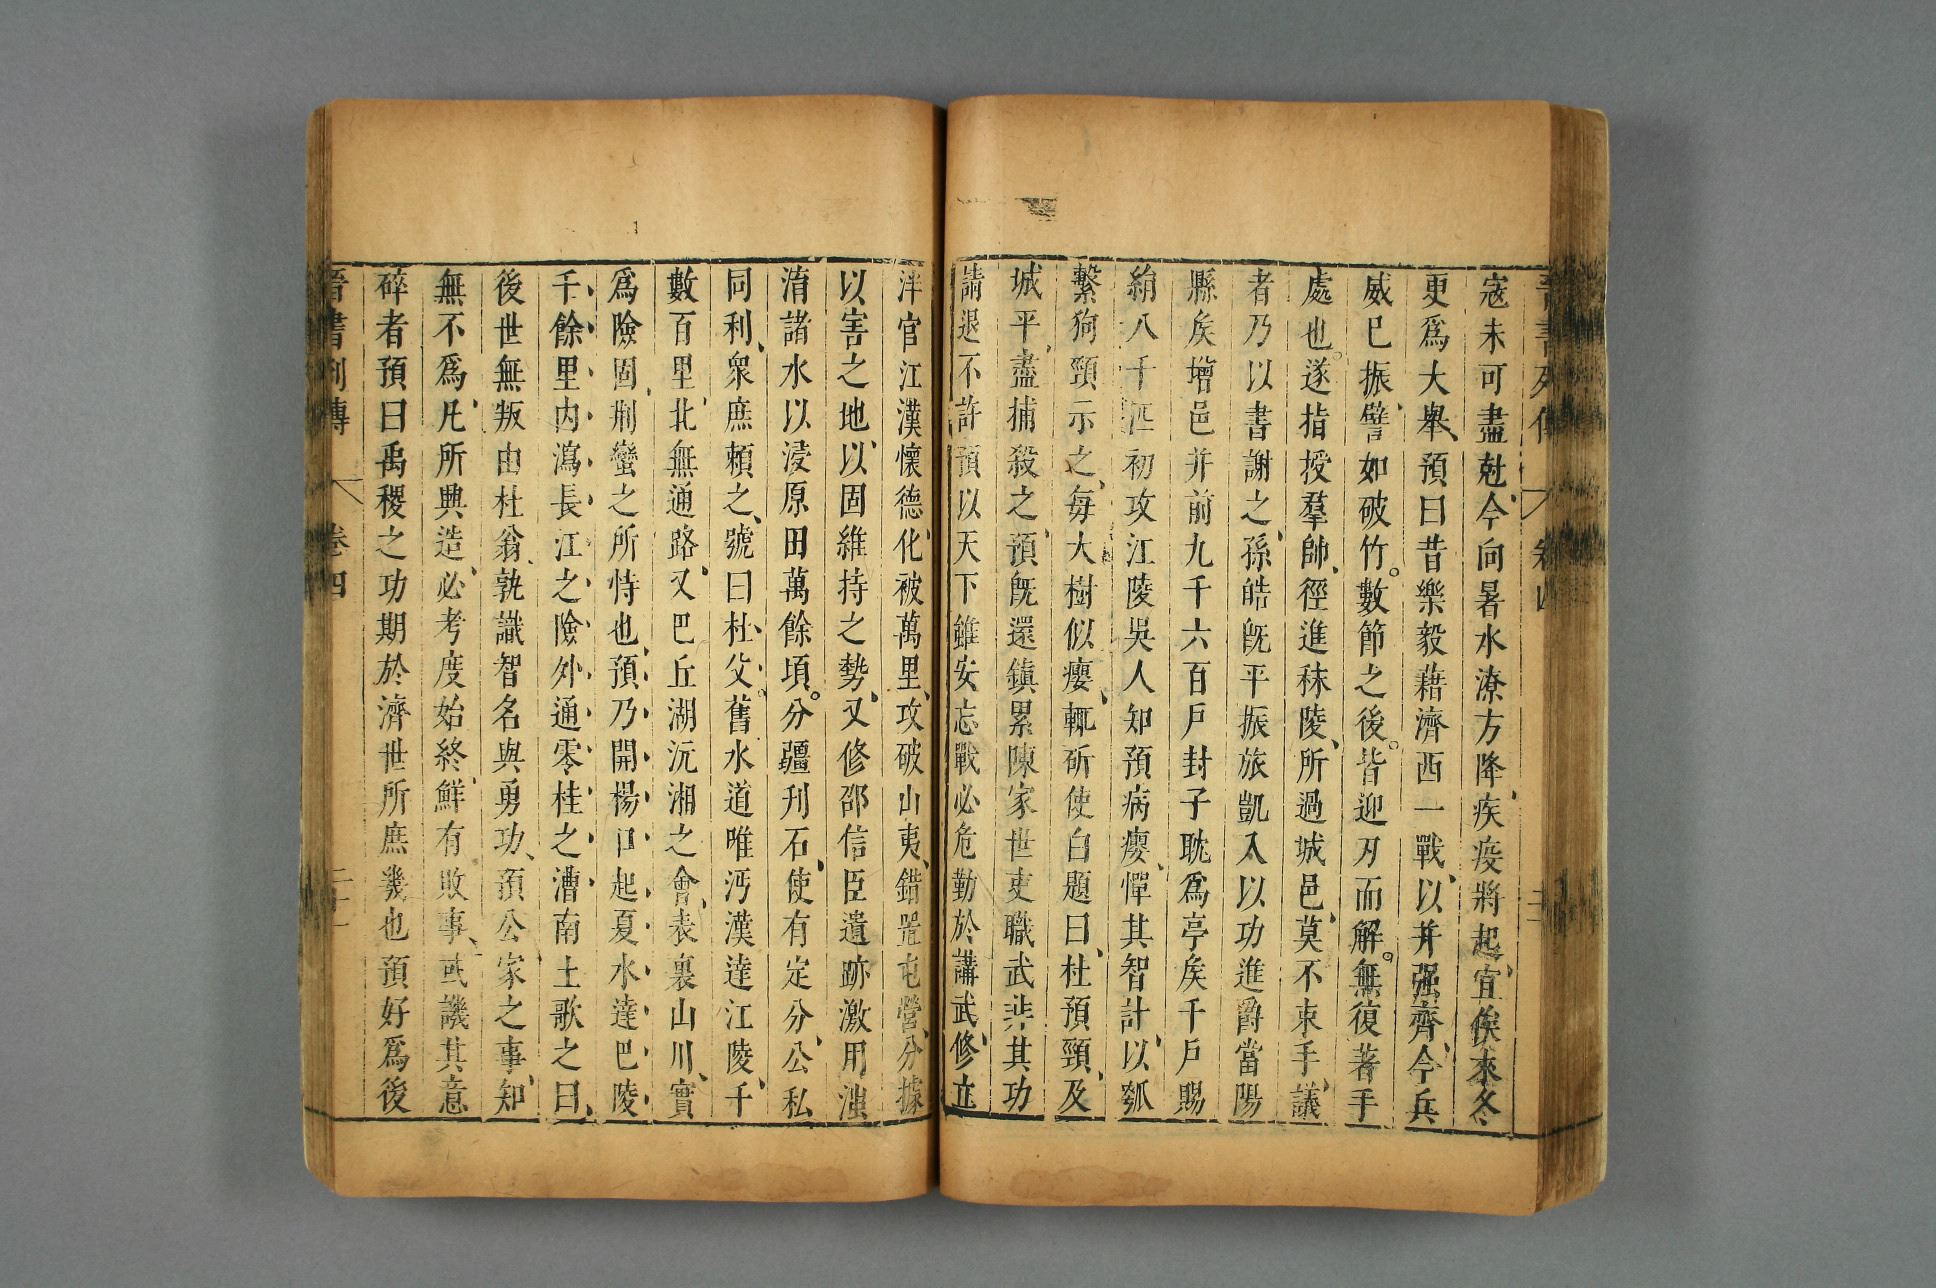 晉書列傳 卷四
寇未可盡尅今向暑水潦方降疾疫將起宜俟來冬
更爲大舉預曰昔樂毅藉濟西一戰以并强齊今兵
威已振譬如破竹數節之後皆迎刃而解無復著手
處也遂指授羣帥徑進秣陵所過城邑莫不束手議
者乃以書謝之孫皓旣平振旅凱入以功進爵當陽
縣矦增邑并前九千六百戶封子耽爲亭矦千戶賜
絹八千匹初攻江陵吳人知預病癭憚其智計以瓠
繫狗頸示之每大樹似癭輒斫使白題曰杜預頸及
城平盡捕殺之預旣還鎮累陳家世吏職武非其功
請退不許預以天下雖安忘戰必危勤於講武修立
泮官江漢懷德化被萬里攻破山夷錯置屯營分據
以害之地以固維持之勢又修邵信臣遺跡激用滍
淯諸水以浸原田萬餘頃分疆刋石使有定分公私
同利衆庶賴之號曰杜父舊水道唯沔漢達江陵千
數百里北無通路又巴丘湖沅湘之會表裏山川實
爲險固荆蠻之所恃也預乃開楊口起夏水達巴陵
千餘里内瀉長江之險外通零桂之漕南土歌之曰
後世無叛由杜翁孰識智名與勇功預公家之事知
無不爲凡所興造必考度始終鮮有敗事或譏其意
碎者預曰禹稷之功期於濟世所庶幾也預好爲後
晉書列傳 卷四